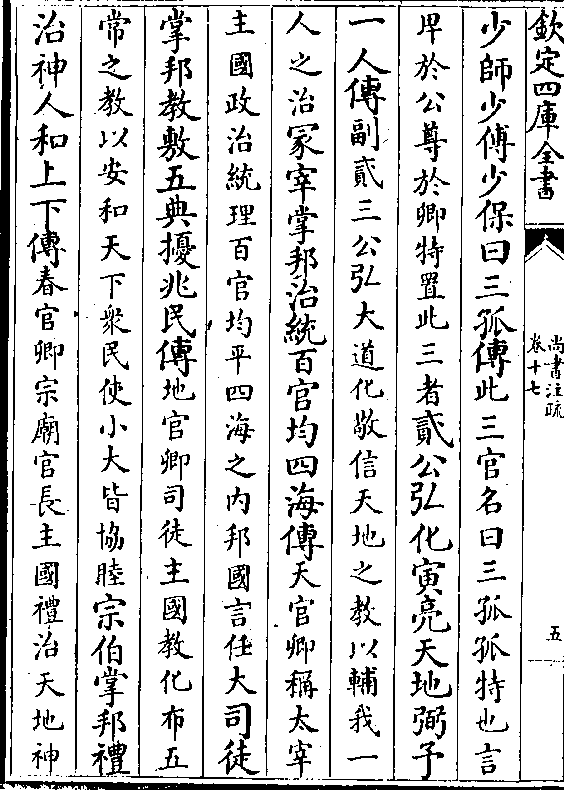 欽定四庫全書
尚書注疏
卷十七
五
少師少傅少保曰三孤傳此三官名曰三孤孤特也言
卑於公尊於卿特置此三者貳公弘化寅亮天地弼予
一人傳副貳三公弘大道化敬信天地之教以輔我一
人之治冢宰掌邦治統百官均四海傳天官卿稱太宰
主國政治統理百官均平四海之内邦國言任大司徒
掌邦教敷五典擾兆民傳地官卿司徒主國教化布五
常之教以安和天下衆民使小大皆協睦宗伯掌邦禮
治神人和上下傳春官卿宗廟官長主國禮治天地神